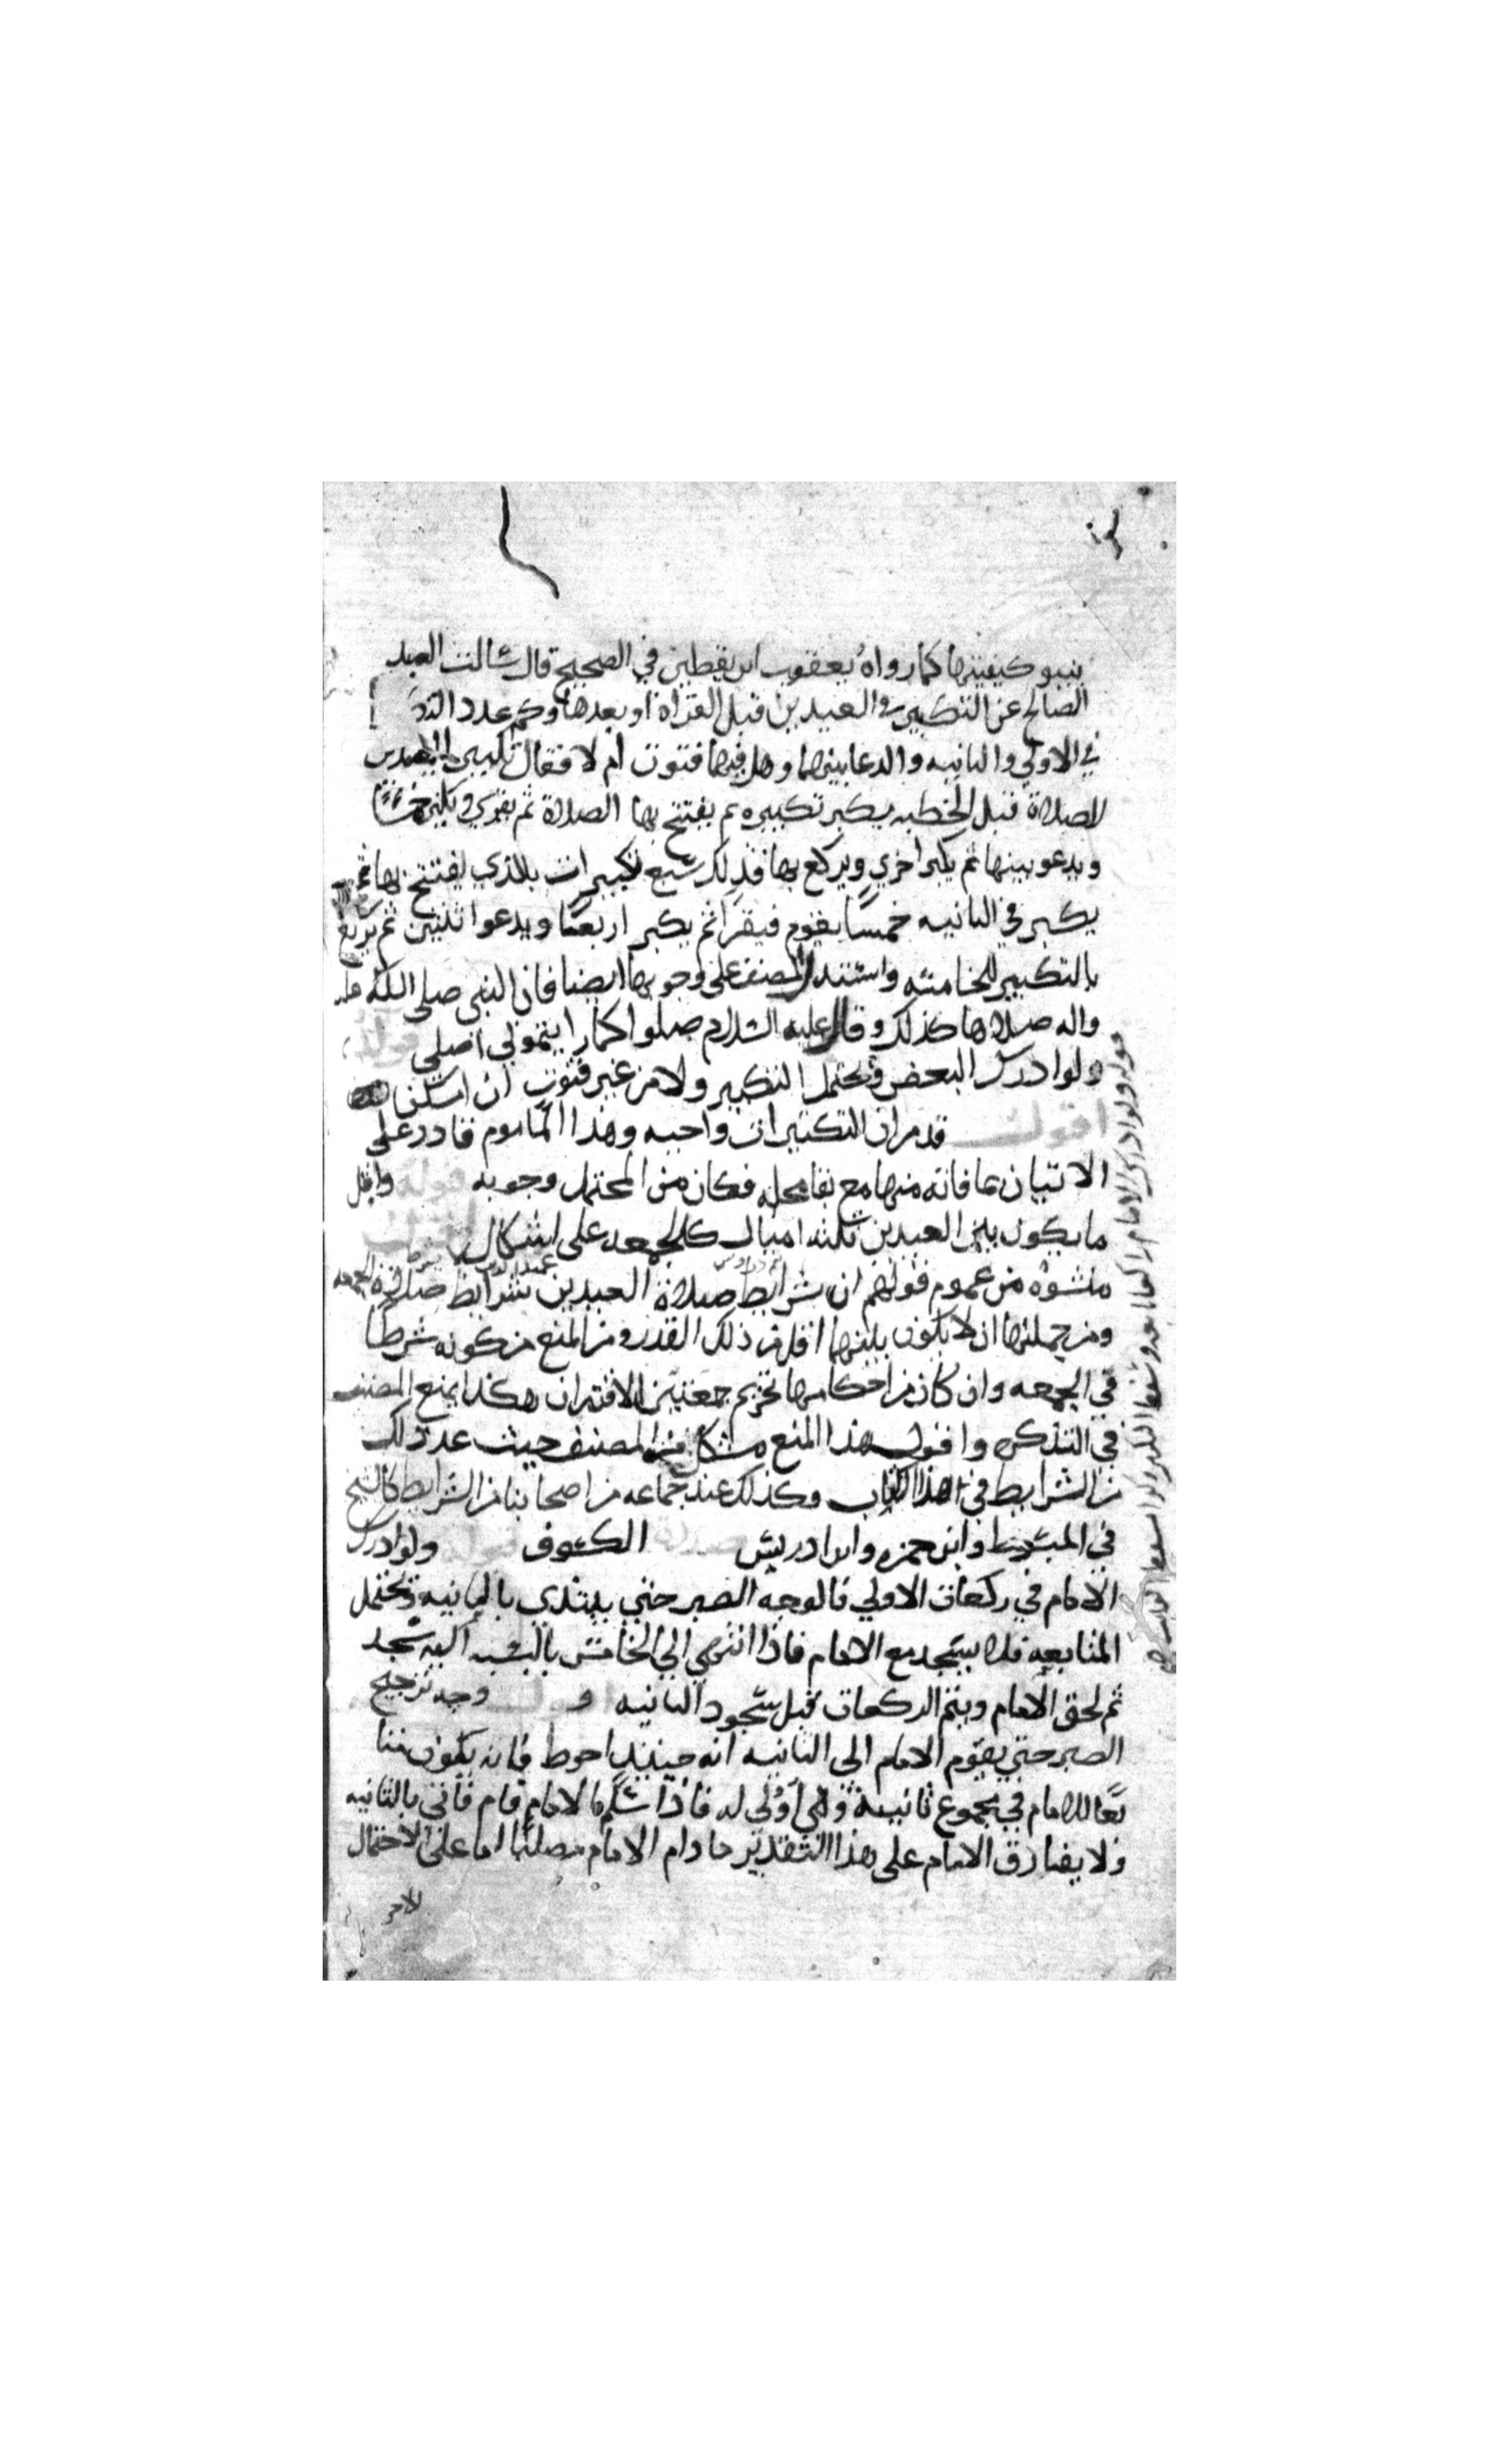 يبنو كيفيتها كما رواه يعقوب ابن يقطين في الصحيح قال سالت العبد
الصالح عن التكبير في العيدين قبل القراة او بعدها وكم عدد التك
في الاولي والثانيه والدعا بينهما وهل فيها قنوت ام لا فقال تكبير العيدين
للصلاة قبل الخطبه يكبر تكبيره ثم يفتتح بها الصلاة ثم يقري ويكبر خمسا
ويدعو بينها ثم يكبر اخري ويركع بها فذلك سبع تكبيرات بالذي يفتتح بها ثم
يكبر في الثانيه خمسا يقوم فيقرا ثم يكبر اربعا ويدعوا بينهن ثم يركع
بالتكبير الخامسه واستدل المصنف علي وجوبها ايضا فان النبي صلي الله عليه
واله صلاها كذلك وقال عليه السلام صلوا كما رايتموني اصلي قوله
ولو ادرك البعض فيحتمل التكبير ولا من غير قنوت ان امكن
اقول قد مر ان التكبيرات واجبه وهذا الماموم قادر علي
الاتيان بما فاته منها مع بقا محله فكان من المحتمل وجوبه قوله واقل
ما يكون بين العيدين ثلثه اميال كالجمعه علي اشكال اقول
منشوه من عموم قولهم ان شرايط صلاة العيدين شرايط صلاة الجمعه
ومن جملتها ان لا يكون بينهما اقل من ذلك القدر ومن المنع من كونه شرطا
في الجمعه وان كان من احكامها تحريم جمعتين الاقتران هكذا يمنع المصنف
في التذكره واقول هذا المنع مشكل من المصنف حيث عد ذلك
من الشرايط في هذا الكتاب وكذلك عند جماعه من اصحابنا من الشرايط كالشيخ
في المبسوط وابن حمزه وابن ادريس صلاة الكسوف قوله ولو ادرك
الامام في ركعات الاولي فالوجه الصبر حتي يبتدي بالثانيه ويحتمل
المتابعه فلا يسجد مع الامام فاذا انتهي الي الخامس بالنسبه اليه سجد
ثم لحق الامام ويتم الركعات قبل سجود الثانيه اقول وجه ترجيح
الصبر حتي يقوم الامام الي الثانيه انه حينئذ احوط فانه يكون متا
بعا للامام في مجموع ثانيته وهي اولي له فاذا سلم الامام قام فاتي بالثانيه
ولا يفارق الامام علي هذا التقدير ما دام الامام مصليا اما علي الاحتمال
الاخر